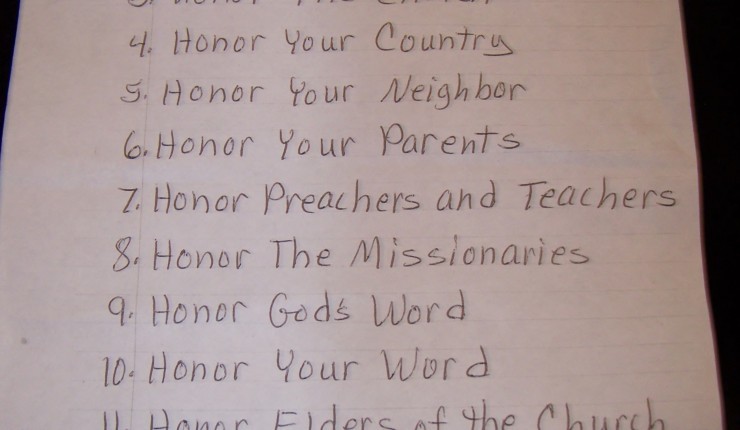 3. Honor The Church
4. Honor Your Country
5. Honor Your Neighbor
6. Honor Your Parents
7. Honor Preachers and Teachers
8. Honor The Missionaries
9. Honor God's Word
10. Honor Your Word
11. Honor Elders of the Church